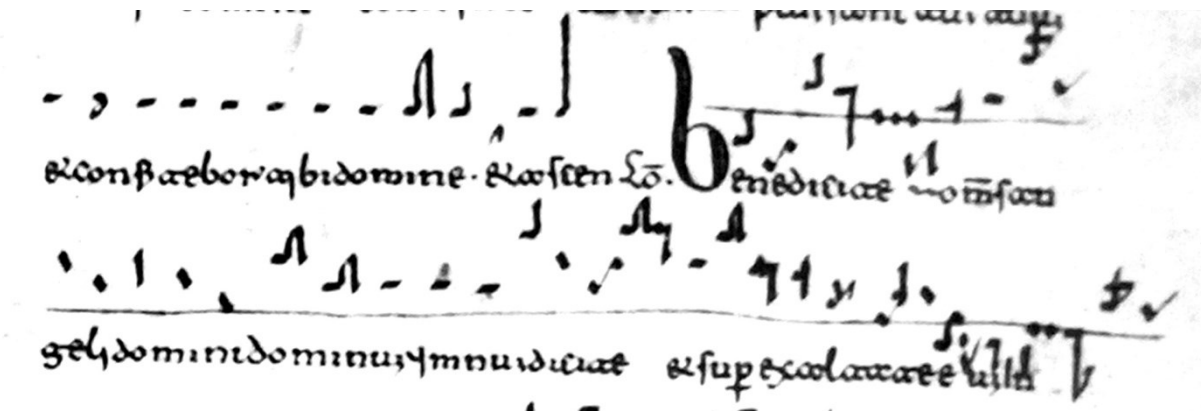 &confitaebor tibi domine · &ascen Lō. Benedicitae om̄s an
geli domini dominum ymnum dicitae &sup exaltatae